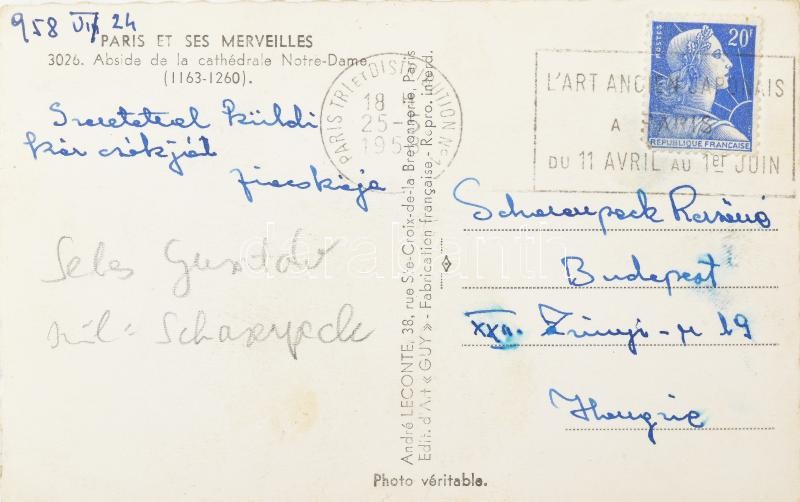 958 VII 24
PARIS ET SES MERVEILLES
3026. Abside de la cathédrale Notre-Dame.
(1163-1260).
Szeretettel küldi
kézcsókját
PARIS TRI et DISTRIBUTION No
18
25-
195
POSTES
20F
REPUBLIQUE FRANÇAISE
L'ART ANCIEN JAPONAIS
A PARIS
DU 11 AVRIL AU 1er JUIN
André LECONTE, 38, rue Ste-Croix-de-la Bretonnerie, Paris
Edit. d'Art « GUY » - Fabrication française - Repro. interd.
Budapest
XXII. Zrinyi-u 19
Hongrie
Gusztáv
darabanth
Photo véritable.